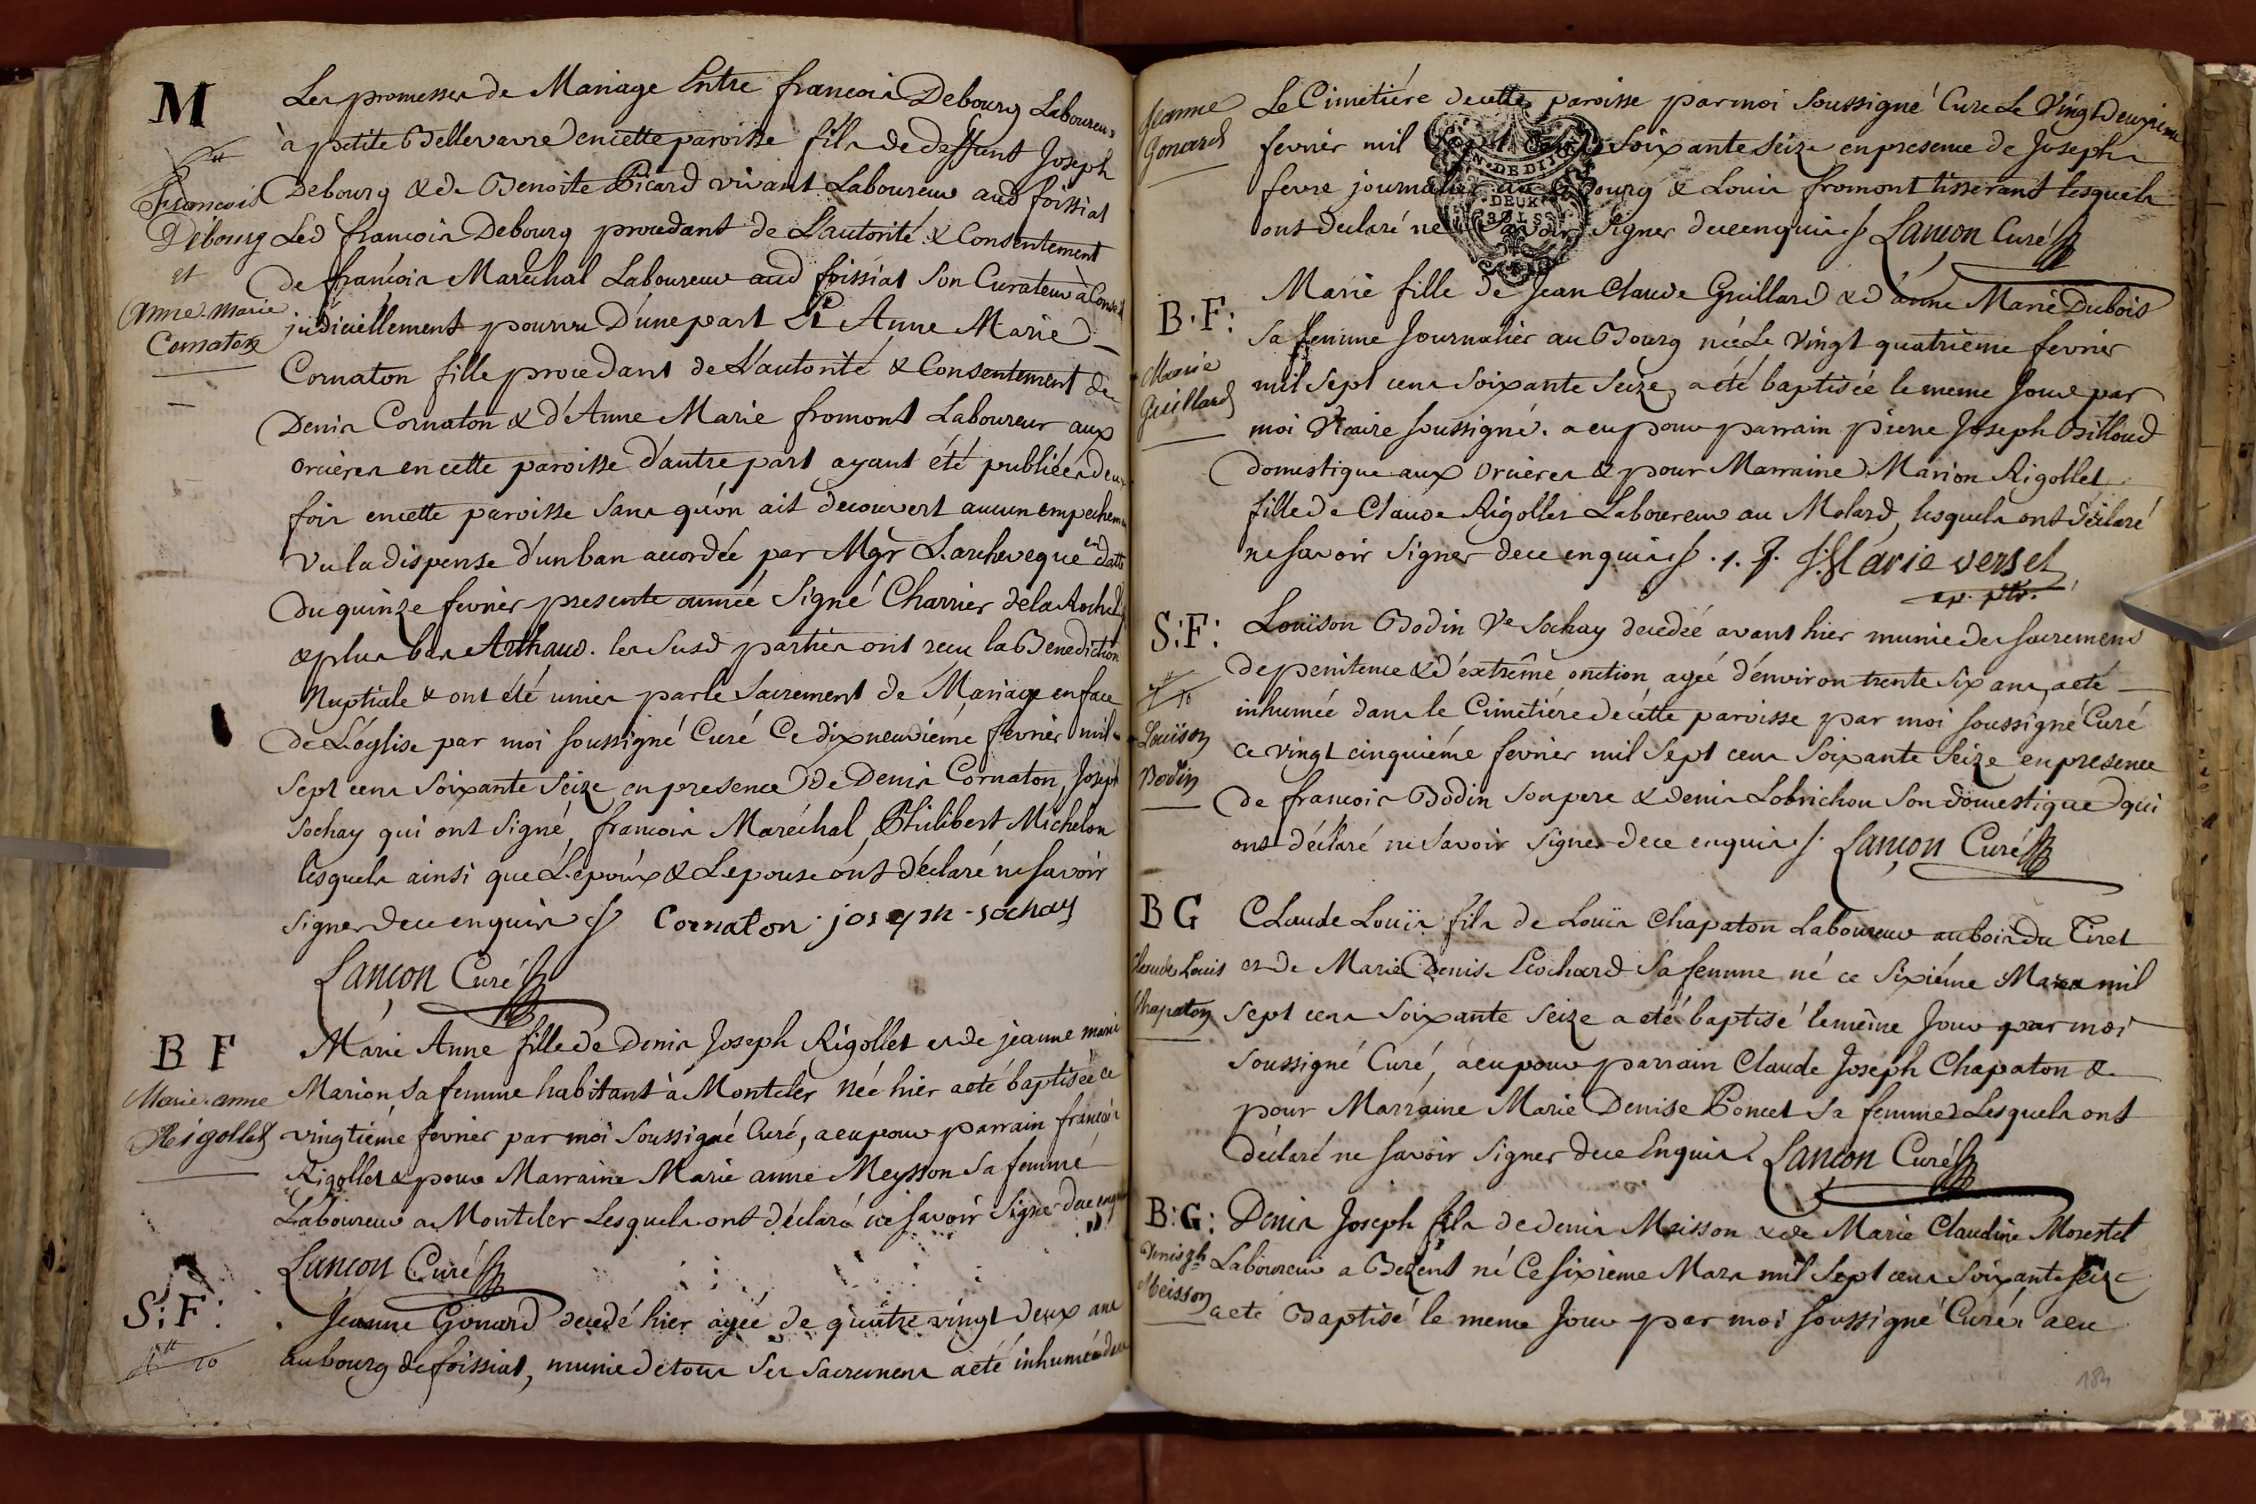 M
François
Debourg
et
Anne-Marie
Cornaton
Les promesses de Mariage Entre francois Debourg Laboureur
à petite Bellevavre en cette paroisse fils de deffunt Joseph
Debourg & de Benoite Picard vivant Laboureur aud foissiat
Led francois Debourg procedant de L'autorité & Consentement
de francois Marechal Laboureur aud foissiat Son Curateur à Conseil
judiciellement pourvu D'une part Et Anne Marie
Cornaton fille procedant de L'autorité & Consentement de
Denis Cornaton & d'Anne Marie fromont Laboureur aux
orcieres en cette paroisse d'autre part ayant été publiées deux
fois en cette paroisse Sans qu'on ait decouvert aucun empechement
Vu la dispense d'un ban accordée par Mgr L'archeveque en datte
Du quinze fevrier presente année Signé Charrier de la Roche
& plus bas Arthaud. les Susd parties ont recu la Benediction
Nuptiale & ont été unies par le Sacrement de Mariage en face
de L'église par moi soussigné Curé Ce dix neuviéme fevrier mil
Sept cens Soixante Seize en presence de Denis Cornaton, Joseph
Sochay qui ont Signé, francois Maréchal, Philibert Michelon
lesquels ainsi que L'epoux & L'epouse ont déclaré ne savoir
signer de ce enquis Cornaton joseph sochay
Lançon Curé
B F
Marie-anne
Rigollet
Marie Anne fille de Denis Joseph Rigollet et de jeanne marie
Marion Sa femme habitant à Montcler Née hier a eté baptisée ce
vingtiéme fevrier par moi Soussigné Curé, a eu pour parrain francois
Rigollet & pour Marraine Marie anne Meysson Sa femme
Laboureur a Montcler Lesquels ont déclaré ne savoir Signer de ce enquis
Lançon Curé
S: F:
10
Jeanne Gonard decedé hier agée de quatre vingt deux ans
au bourg de foissiat, munie de tous Ses Sacremens a eté inhumée dans
Jeanne
Gonard
Le Cimetiére de cette paroisse par moi Soussigné Curé Le Vingt Deuxieme
fevrier mil Sept cens Soixante Seize en presence de Joseph
fevre journalier au Bourg & Louis fromont tisserant lesquels
ont declaré ne Savoir Signer de ce enquis Lançon Curé
DE DIJON
DEUX
SOLS
B. F:
Marie
Guillard
Marie fille de Jean Claude Guillard & d'anne Marie Dubois
Sa femme Journalier au Bourg née Le Vingt quatrième fevrier
mil Sept cens Soixante Seize, a été baptisée le meme Jour par
moi Vicaire soussigné. a eu pour parrain pierre Joseph Billoud
domestique aux Orcieres & pour Marraine Marion Rigollet
fille de Claude Rigollet Laboureur au Molard, lesquels ont déclaré
ne savoir Signer de ce enquis Marie verset
S: F:
10
Louison
Bodin
Louison Bodin Ve Sochay decedée avant hier munie des sacremens
de penitence & d'extrême onction agée d'environ trente Six ans, a eté
inhumée dans le Cimetiére de cette paroisse par moi soussigné Curé
ce vingt cinquiéme fevrier mil Sept cens Soixante Seize en presence
de francois Bodin Son pere & denis Lobrichon Son domestique qui
ont déclaré ne Savoir Signer de ce enquis Lançon Curé
BG
Claude Louis
Chapaton
Claude Louis fils de Louis Chapaton Laboureur au bois du Tiret
et de Marie Denise Cochard Sa femme né ce Sixiéme Mars mil
Sept cens Soixante Seize a eté baptisé le même Jour par moi
Soussigné Curé, a eu pour parrain Claude Joseph Chapaton &
pour Marraine Marie Denise Poncet Sa femme Lesquels ont
déclaré ne savoir Signer de ce Enquis Lançon Curé
B: G:
Denis Jh
Meisson
Denis Joseph fils de denis Meisson & de Marie Claudine Morestel
Laboureur a Bezent né Ce Sixieme Mars mil Sept cens Soixante Seize
a eté Baptisé le meme Jour par moi soussigné Curé, a eu
184